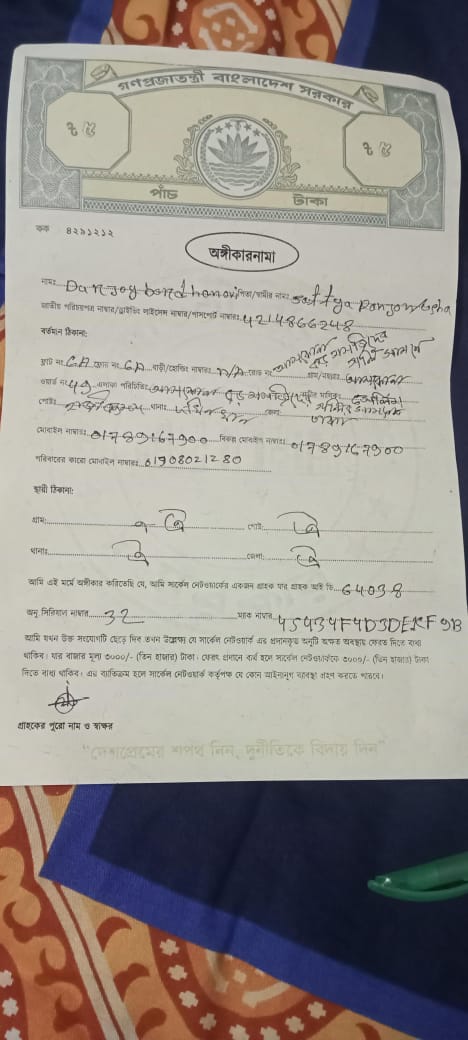 গণপ্রজাতন্ত্রী বাংলাদেশ সরকার
২৫ ২৫
পাঁচ টাকা
কক ৪২৯১২১২
অঙ্গীকারনামা
নামঃ Dan joy bond পিতা/স্বামীর নামঃ Ranjon
জাতীয় পরিচয়পত্র নাম্বার/ড্রাইভিং লাইসেন্স নাম্বার/পাসপোর্ট নাম্বারঃ 4214866248
বর্তমান ঠিকানা:
ফ্লাট নং: G.A বাড়ী/হোল্ডিং নাম্বারঃ N/A রোড নং গ্রাম/মহল্লাঃ
ওয়ার্ড নং 49 এলাকা পরিচিতিঃ
পোষ্টঃ থানাঃ জেলাঃ ঢাকা
মোবাইল নাম্বারঃ 01789167900 বিকল্প মোবাইল নাম্বারঃ 01789167900
পরিবারের কারো মোবাইল নাম্বারঃ 01908021280
স্থায়ী ঠিকানা:
গ্রাম: ঐ পোষ্ট: ঐ
থানাঃ ঐ জেলা: ঐ
আমি এই মর্মে অঙ্গীকার করিতেছি যে, আমি সার্কেল নেটওয়ার্কের একজন গ্রাহক যার গ্রাহক আই ডি 64038
অনু সিরিয়াল নাম্বার 32 ম্যাক নাম্বার 45434F4D3DEKF9B
আমি যখন উক্ত সংযোগটি ছেড়ে দিব তখন উল্লেখ্য যে সার্কেল নেটওয়ার্ক এর প্রদানকৃত অনুটি অক্ষত অবস্থায় ফেরত দিতে বাধ্য
থাকিব। যার বাজার মূল্য ৩০০০/- (তিন হাজার) টাকা। ফেরৎ প্রদানে ব্যর্থ হলে সার্কেল নেটওয়ার্ককে ৩০০০/- (তিন হাজার) টাকা
দিতে বাধ্য থাকিব। এর ব্যতিক্রম হলে সার্কেল নেটওয়ার্ক কর্তৃপক্ষ যে কোন আইনানুগ ব্যবস্থা গ্রহণ করতে পারবে।
গ্রাহকের পুরো নাম ও স্বাক্ষর
"দেশপ্রেমের শপথ নিন, দুর্নীতিকে বিদায় দিন"